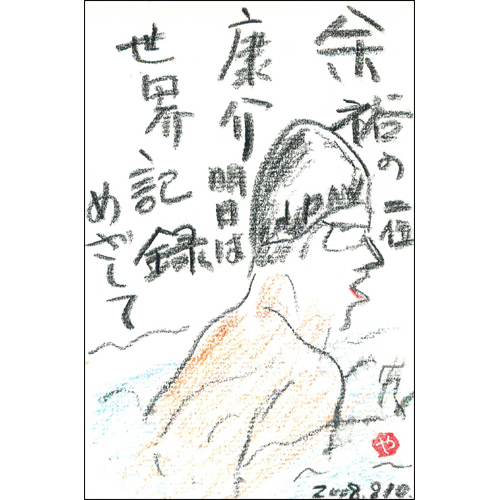 余裕の一位
康介明日は
世界記録
めざして
JAPAN
や
2008.8.10.